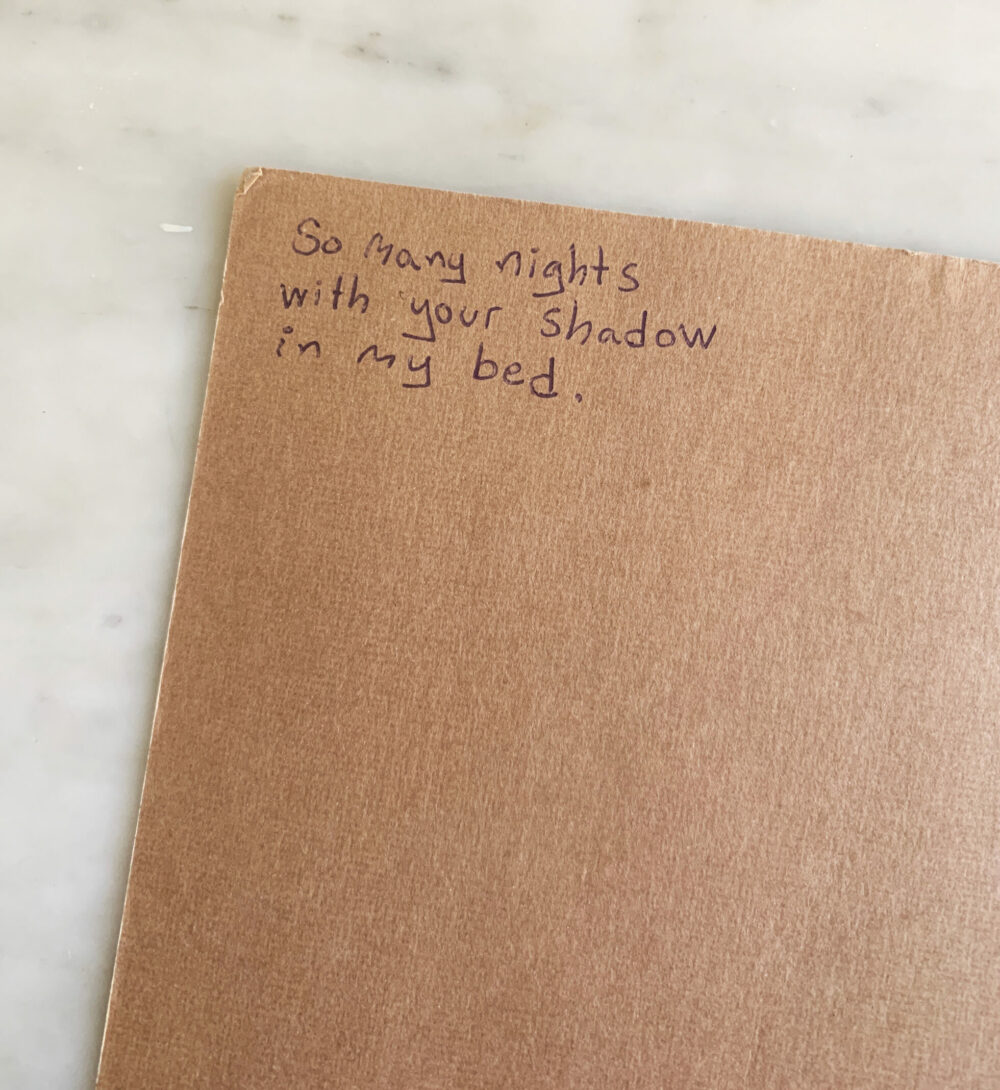 So many nights
with your shadow
in my bed.